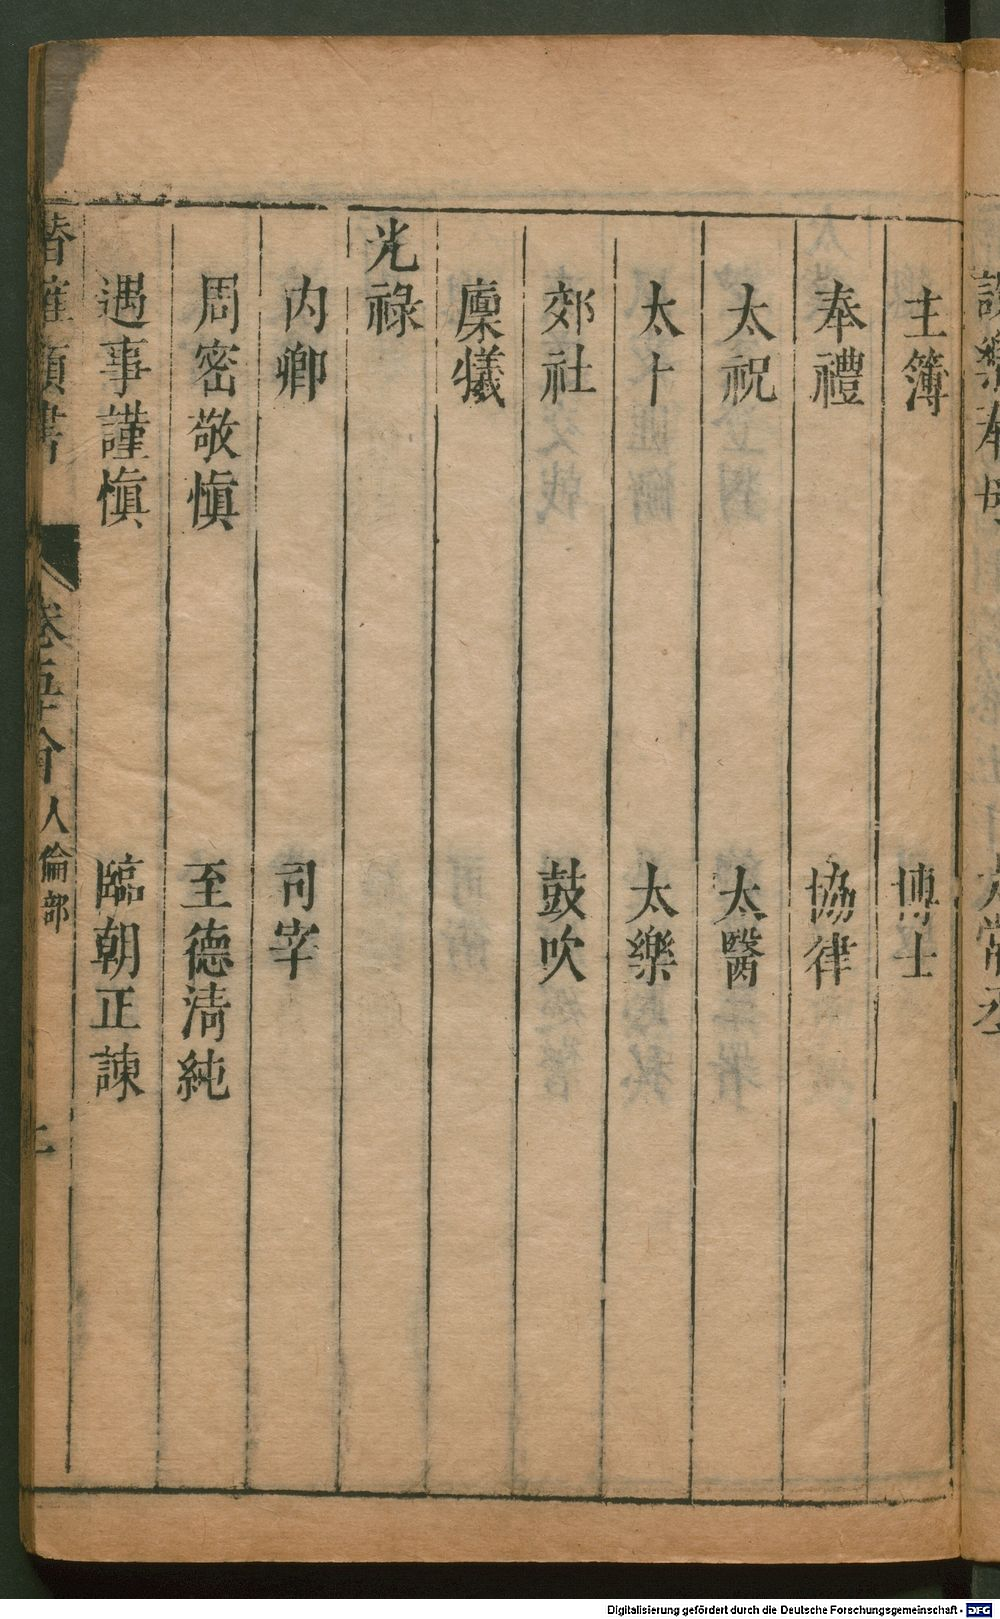 主簿　博士
奉禮　協律
太祝　太醫
太卜　太樂
郊社　鼓吹
廩犧
光祿
內卿　司宰
周密敬慎　至德淸純
遇事謹慎　臨朝正諫
類書　卷五十介　人倫部
Digitalisierung gefördert durch die Deutsche Forschungsgemeinschaft - DFG